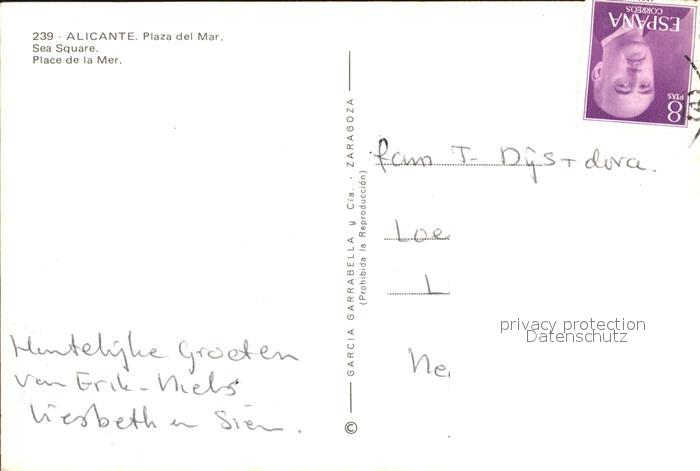 239 - ALICANTE. Plaza del Mar.
Sea Square.
Place de la Mer.
ESPAÑA
CORREOS
8
PTAS
GARCIA GARRABELLA y Cía. - ZARAGOZA
(Prohibida la Reproducción)
©
fam T- Dijst + dora.
Loe
L
Ne
privacy protection
Datenschutz
Hartelijke Groeten
van Erik - Niels
Liesbeth en Sien.